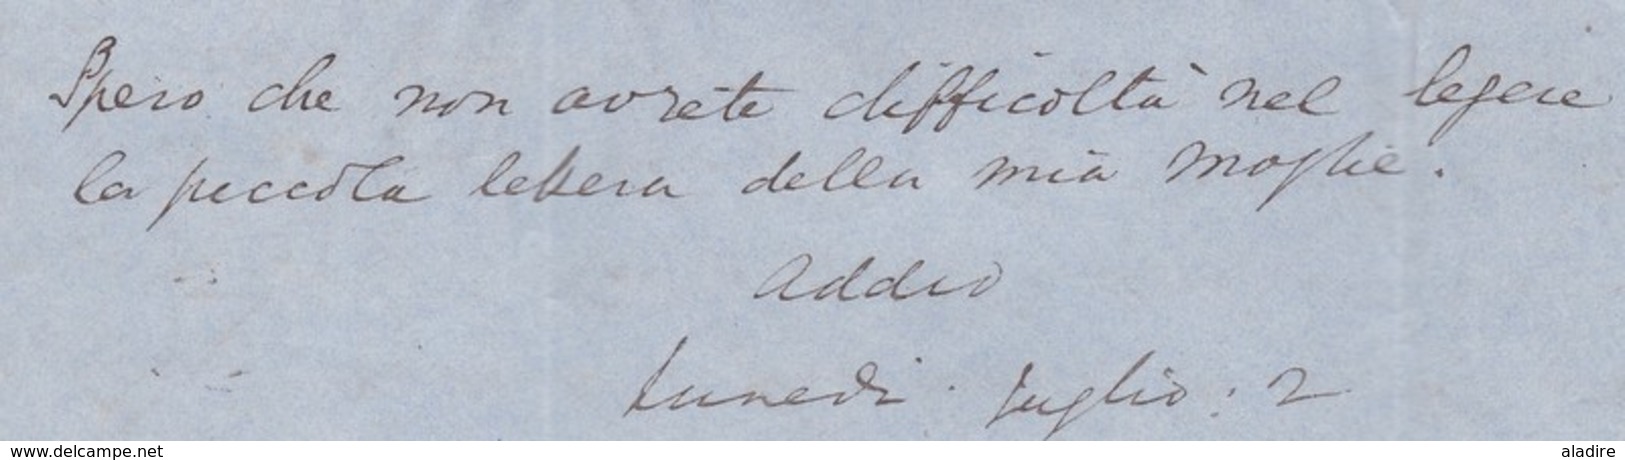 Spero che non avrete difficoltà nel legere
la piccola lettera della mia moglie.
addio
Lunedi. Luglio: 2
www.delcampe.net
aladire